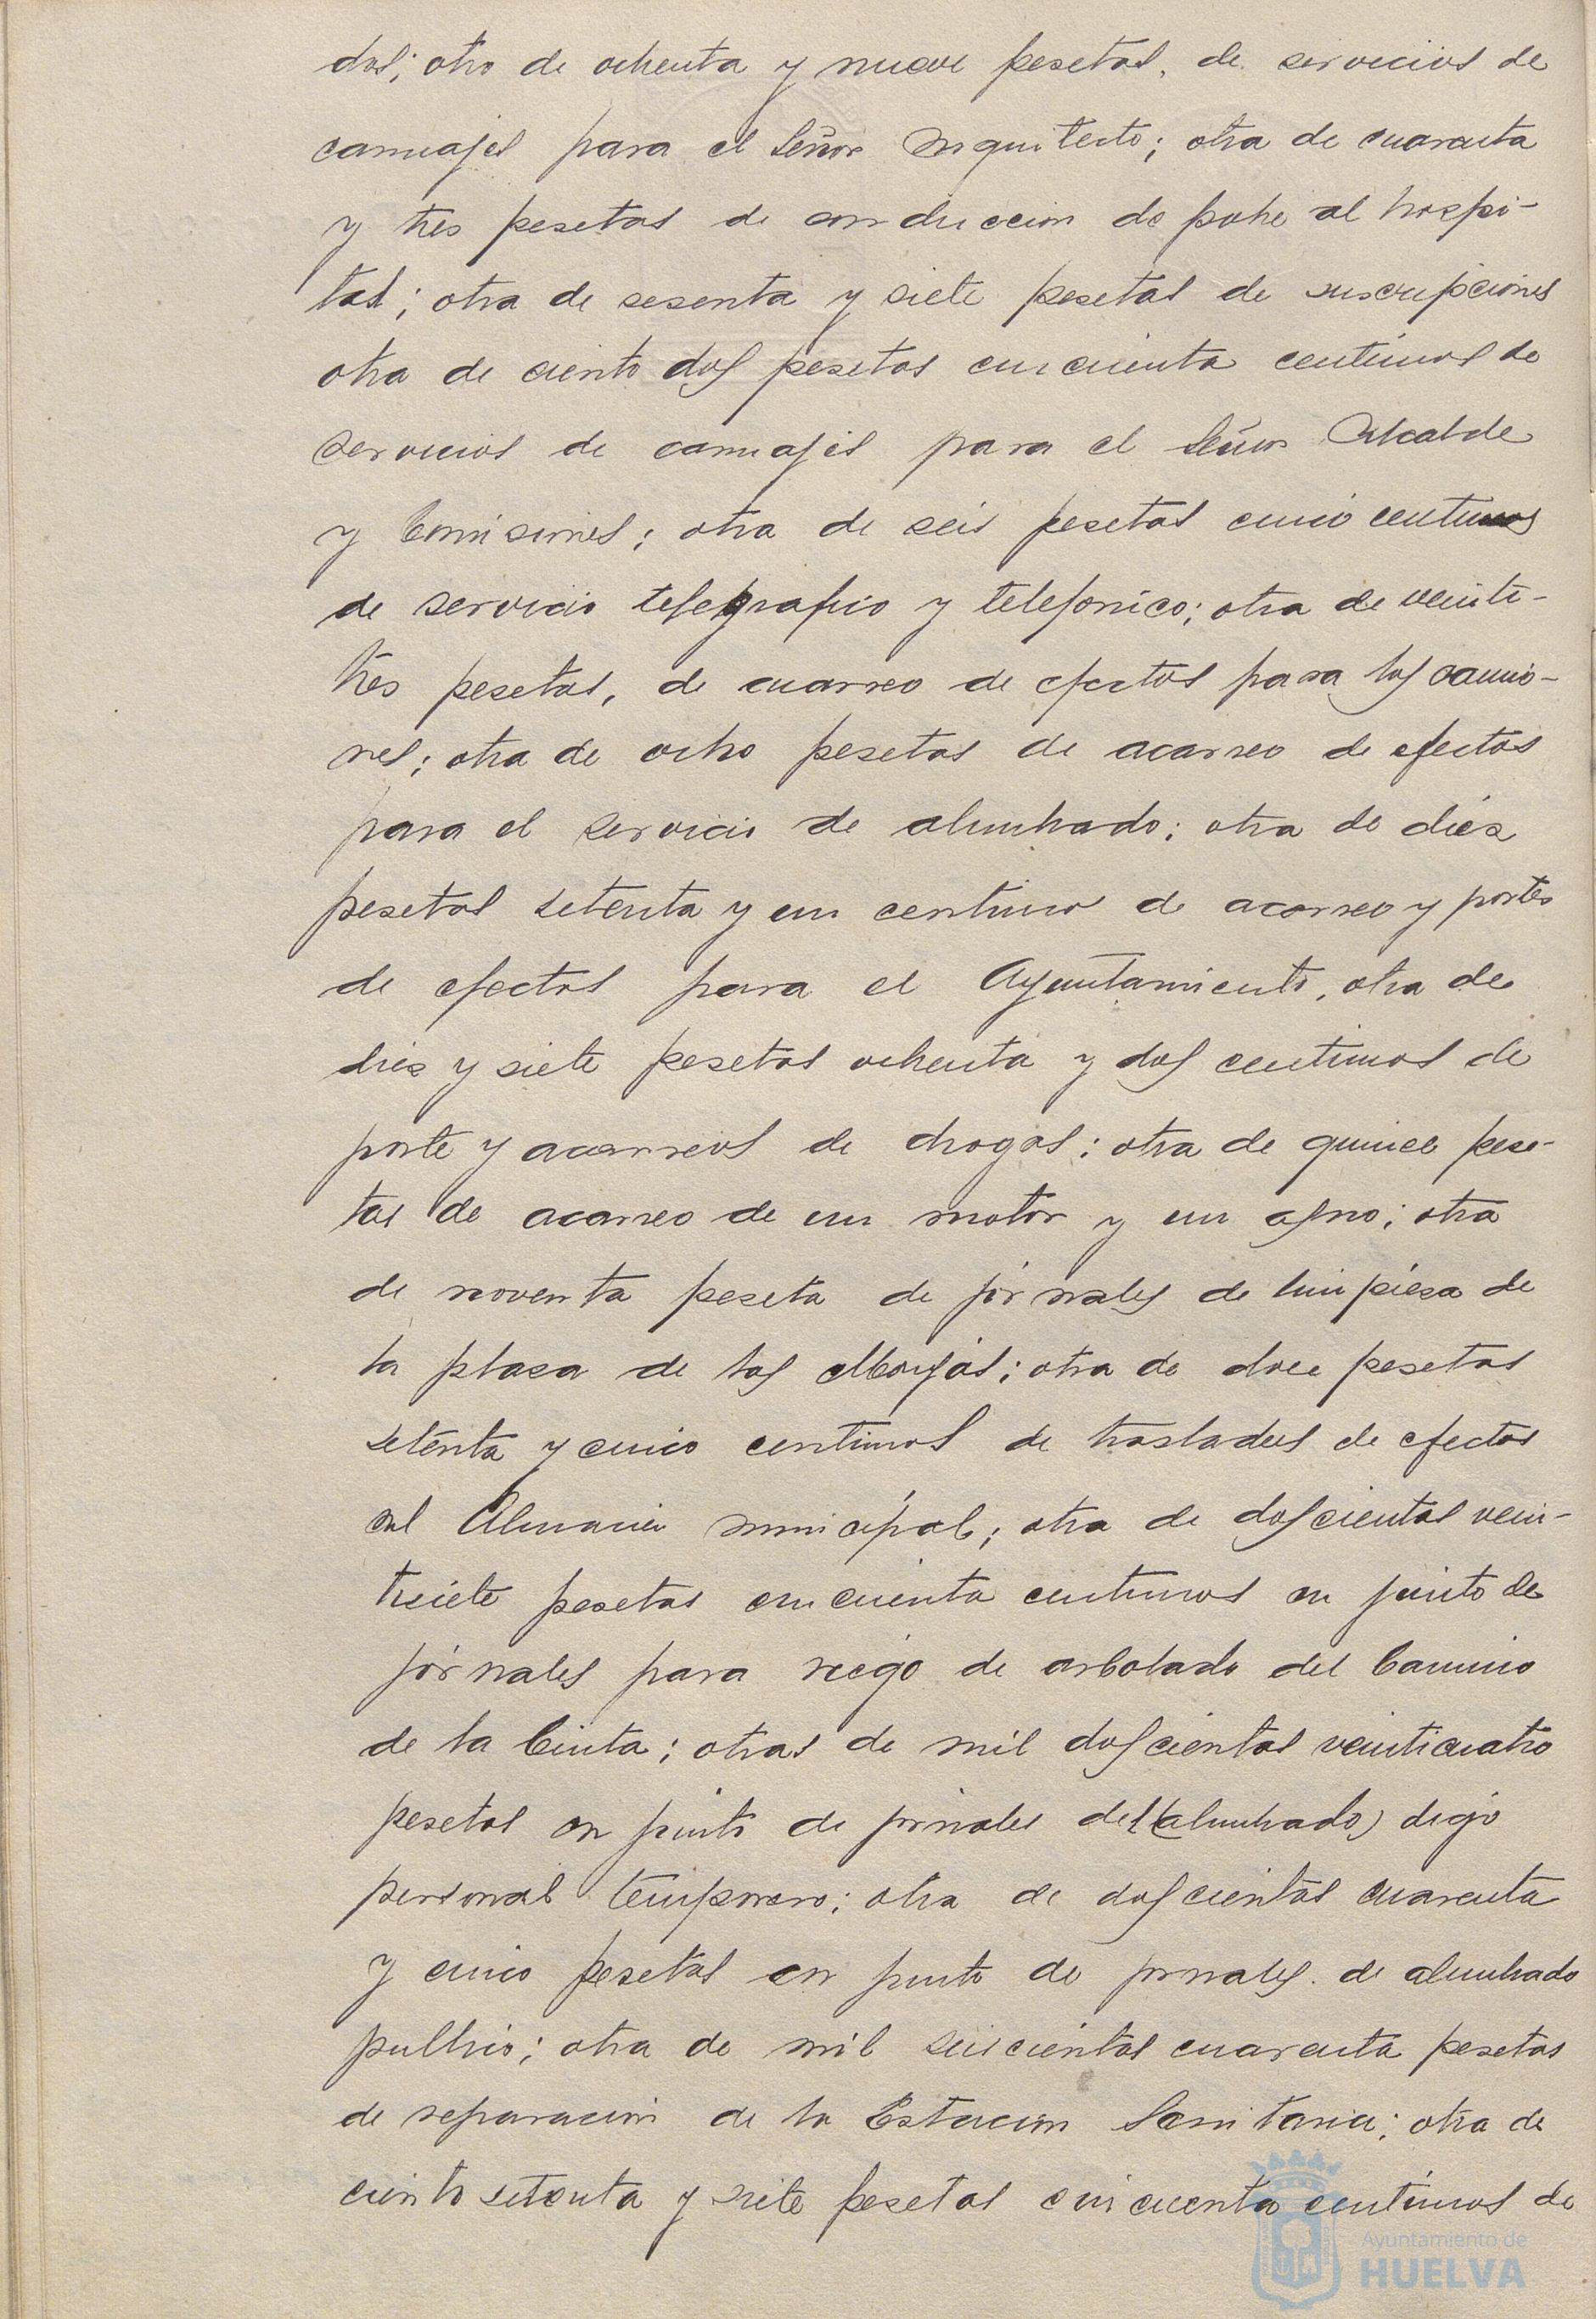 dos; otro de ochenta y nueve pesetas, de servicios de
carruajes para el Señor Arquitecto; otra de cuarenta
y tres pesetas de conduccion de pobre al hospi-
tal; otra de sesenta y siete pesetas de suscripciones
otra de ciento dos pesetas cincuenta centimos de
servicios de carruajes para el Señor Alcalde
y Comisiones; otra de seis pesetas cinco centimos
de servicio telegrafico y telefonico; otra de veinti-
tres pesetas, de acarreo de efectos para los camio-
nes; otra de ocho pesetas de acarreo de efectos
para el servicio de alumbrado; otra de diez
pesetas setenta y un centimo de acarreo y portes
de efectos para el Ayuntamiento, otra de
diez y siete pesetas ochenta y dos centimos de
porte y acarreos de drogas; otra de quince pese-
tas de acarreo de un motor y un asno; otra
de noventa peseta de jornales de limpieza de
la plaza de las Monjas; otra de doce pesetas
setenta y cinco centimos de traslados de efectos
al Almacen municipal; otra de doscientas vein-
tisiete pesetas cincuenta centimos en junto de
jornales para riego de arbolado del Camino
de la Cinta; otras de mil doscientas veinticuatro
pesetas en junto de jornales del (alumbrado) digo
personal temporero; otra de doscientas cuarenta
y cinco pesetas en junto de jornales de alumbrado
publico; otra de mil seiscientas cuarenta pesetas
de reparacion de la Estacion Sanitaria; otra de
ciento setenta y siete pesetas cincuenta centimos de
Ayuntamiento de
HUELVA